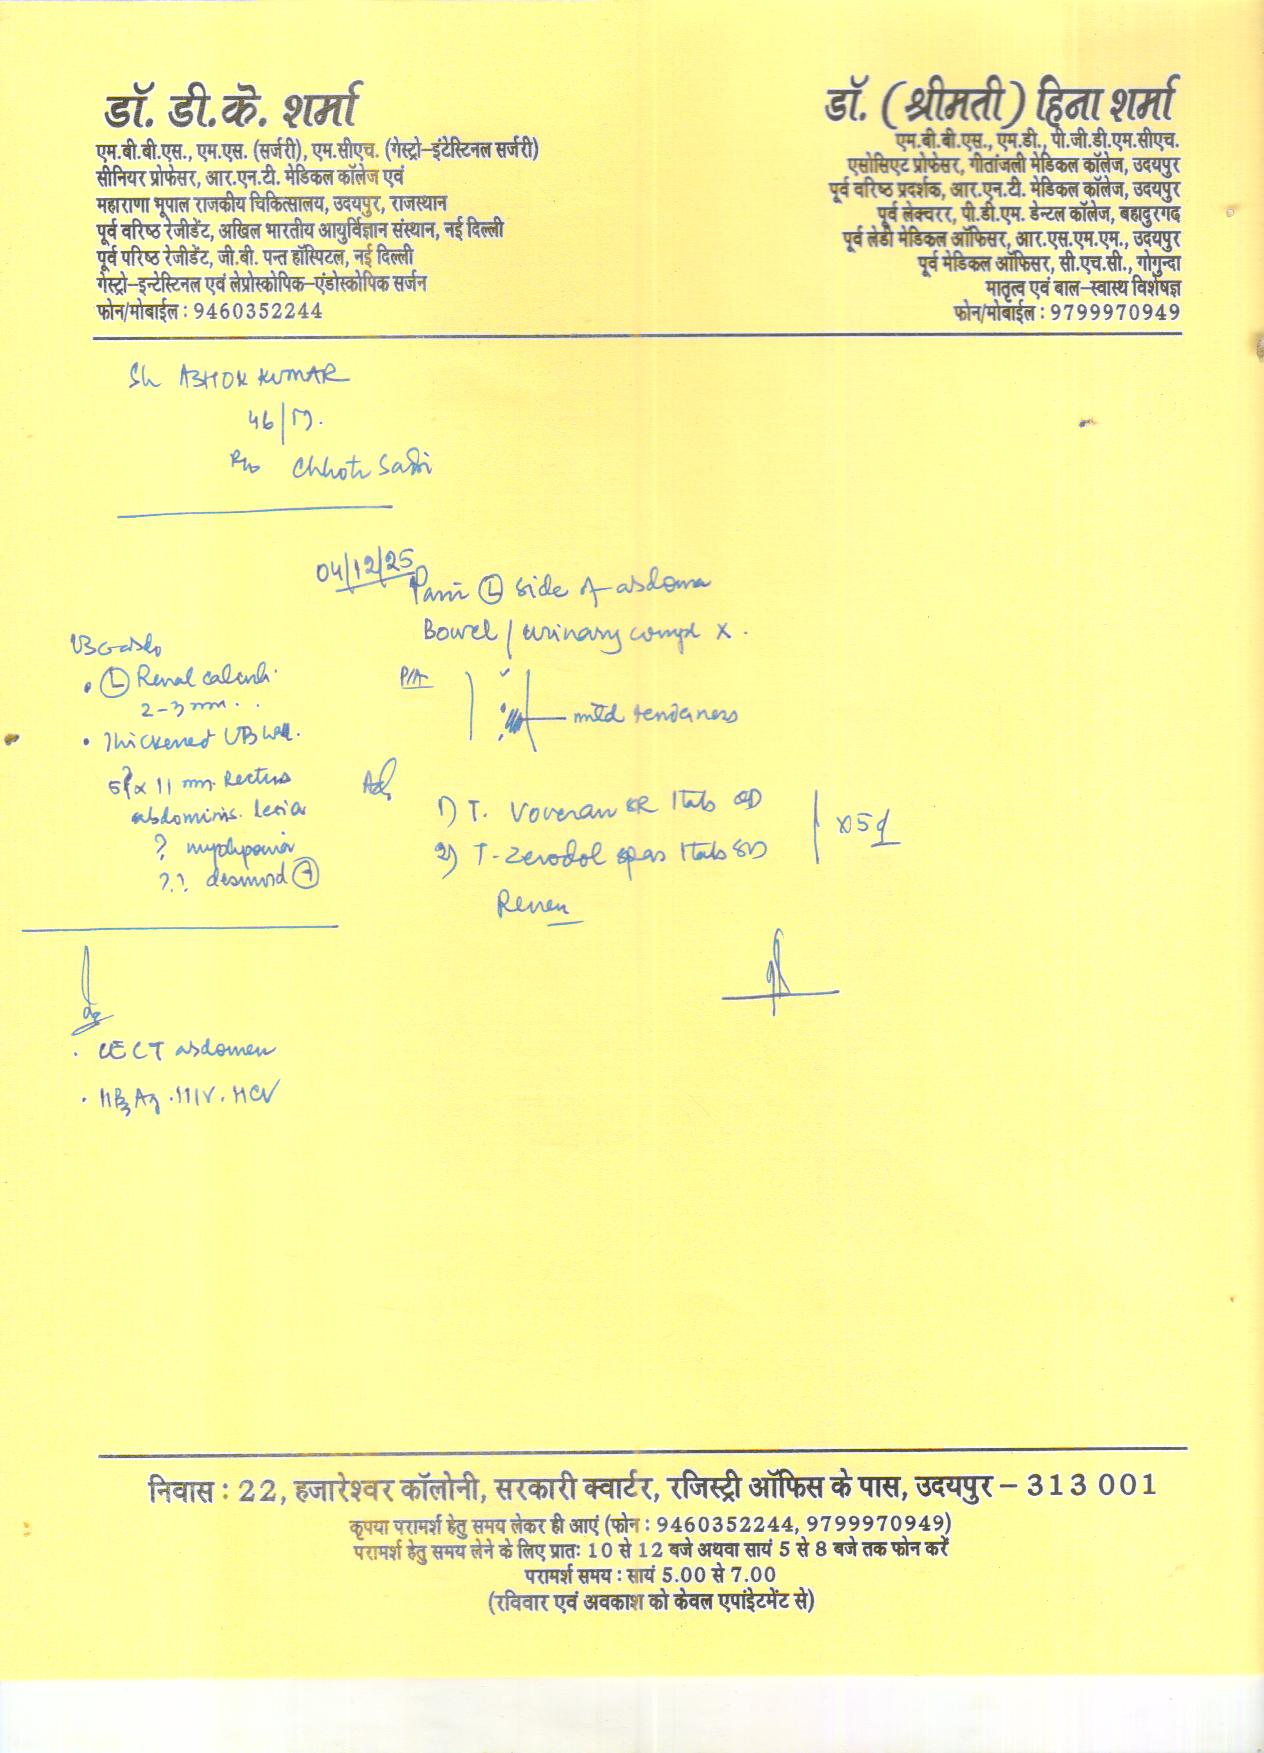 डॉ. डी.के. शर्मा
एम.बी.बी.एस., एम.एस. (सर्जरी), एम.सीएच. (गेस्ट्रो-इंटेस्टिनल सर्जरी)
सीनियर प्रोफेसर, आर.एन.टी. मेडिकल कॉलेज एवं
महाराणा भूपाल राजकीय चिकित्सालय, उदयपुर, राजस्थान
पूर्व वरिष्ठ रेजीडेंट, अखिल भारतीय आयुर्विज्ञान संस्थान, नई दिल्ली
पूर्व परिष्ठ रेजीडेंट, जी.बी. पन्त हॉस्पिटल, नई दिल्ली
गेस्ट्रो-इन्टेस्टिनल एवं लेप्रोस्कोपिक-एंडोस्कोपिक सर्जन
फोन/मोबाईल : 9460352244
डॉ. (श्रीमती) हिना शर्मा
एम.बी.बी.एस., एम.डी., पी.जी.डी.एम.सीएच.
एसोसिएट प्रोफेसर, गीतांजली मेडिकल कॉलेज, उदयपुर
पूर्व वरिष्ठ प्रदर्शक, आर.एन.टी. मेडिकल कॉलेज, उदयपुर
पूर्व लेक्चरर, पी.डी.एम. डेन्टल कॉलेज, बहादुरगढ
पूर्व लेडी मेडिकल ऑफिसर, आर.एस.एम.एम., उदयपुर
पूर्व मेडिकल ऑफिसर, सी.एच.सी., गोगुन्दा
मातृत्व एवं बाल-स्वास्थ विशेषज्ञ
फोन/मोबाईल : 9799970949
Sh ASHOK KUMAR
46/M.
R/o Chhoti Sadri
04/12/25
Pain (L) side of abdomen
Bowel / urinary compl X.
P/A
mild tenderness
Adv
1) T. Voveran SR 1tab OD
2) T-Zerodol spas 1tab BD
x 5d
Review
• (L) Renal calculi.
2-3 mm..
• Thickened UB wall.
x 11 mm. Rectus
abdominis. lesion
??. desmoid
. CECT abdomen
. HBsAg. HIV. HCV
निवास : 22, हजारेश्वर कॉलोनी, सरकारी क्वार्टर, रजिस्ट्री ऑफिस के पास, उदयपुर – 313 001
कृपया परामर्श हेतु समय लेकर ही आएं (फोन : 9460352244, 9799970949)
परामर्श हेतु समय लेने के लिए प्रातः 10 से 12 बजे अथवा सायं 5 से 8 बजे तक फोन करें
परामर्श समय : सायं 5.00 से 7.00
(रविवार एवं अवकाश को केवल एपांइटमेंट से)